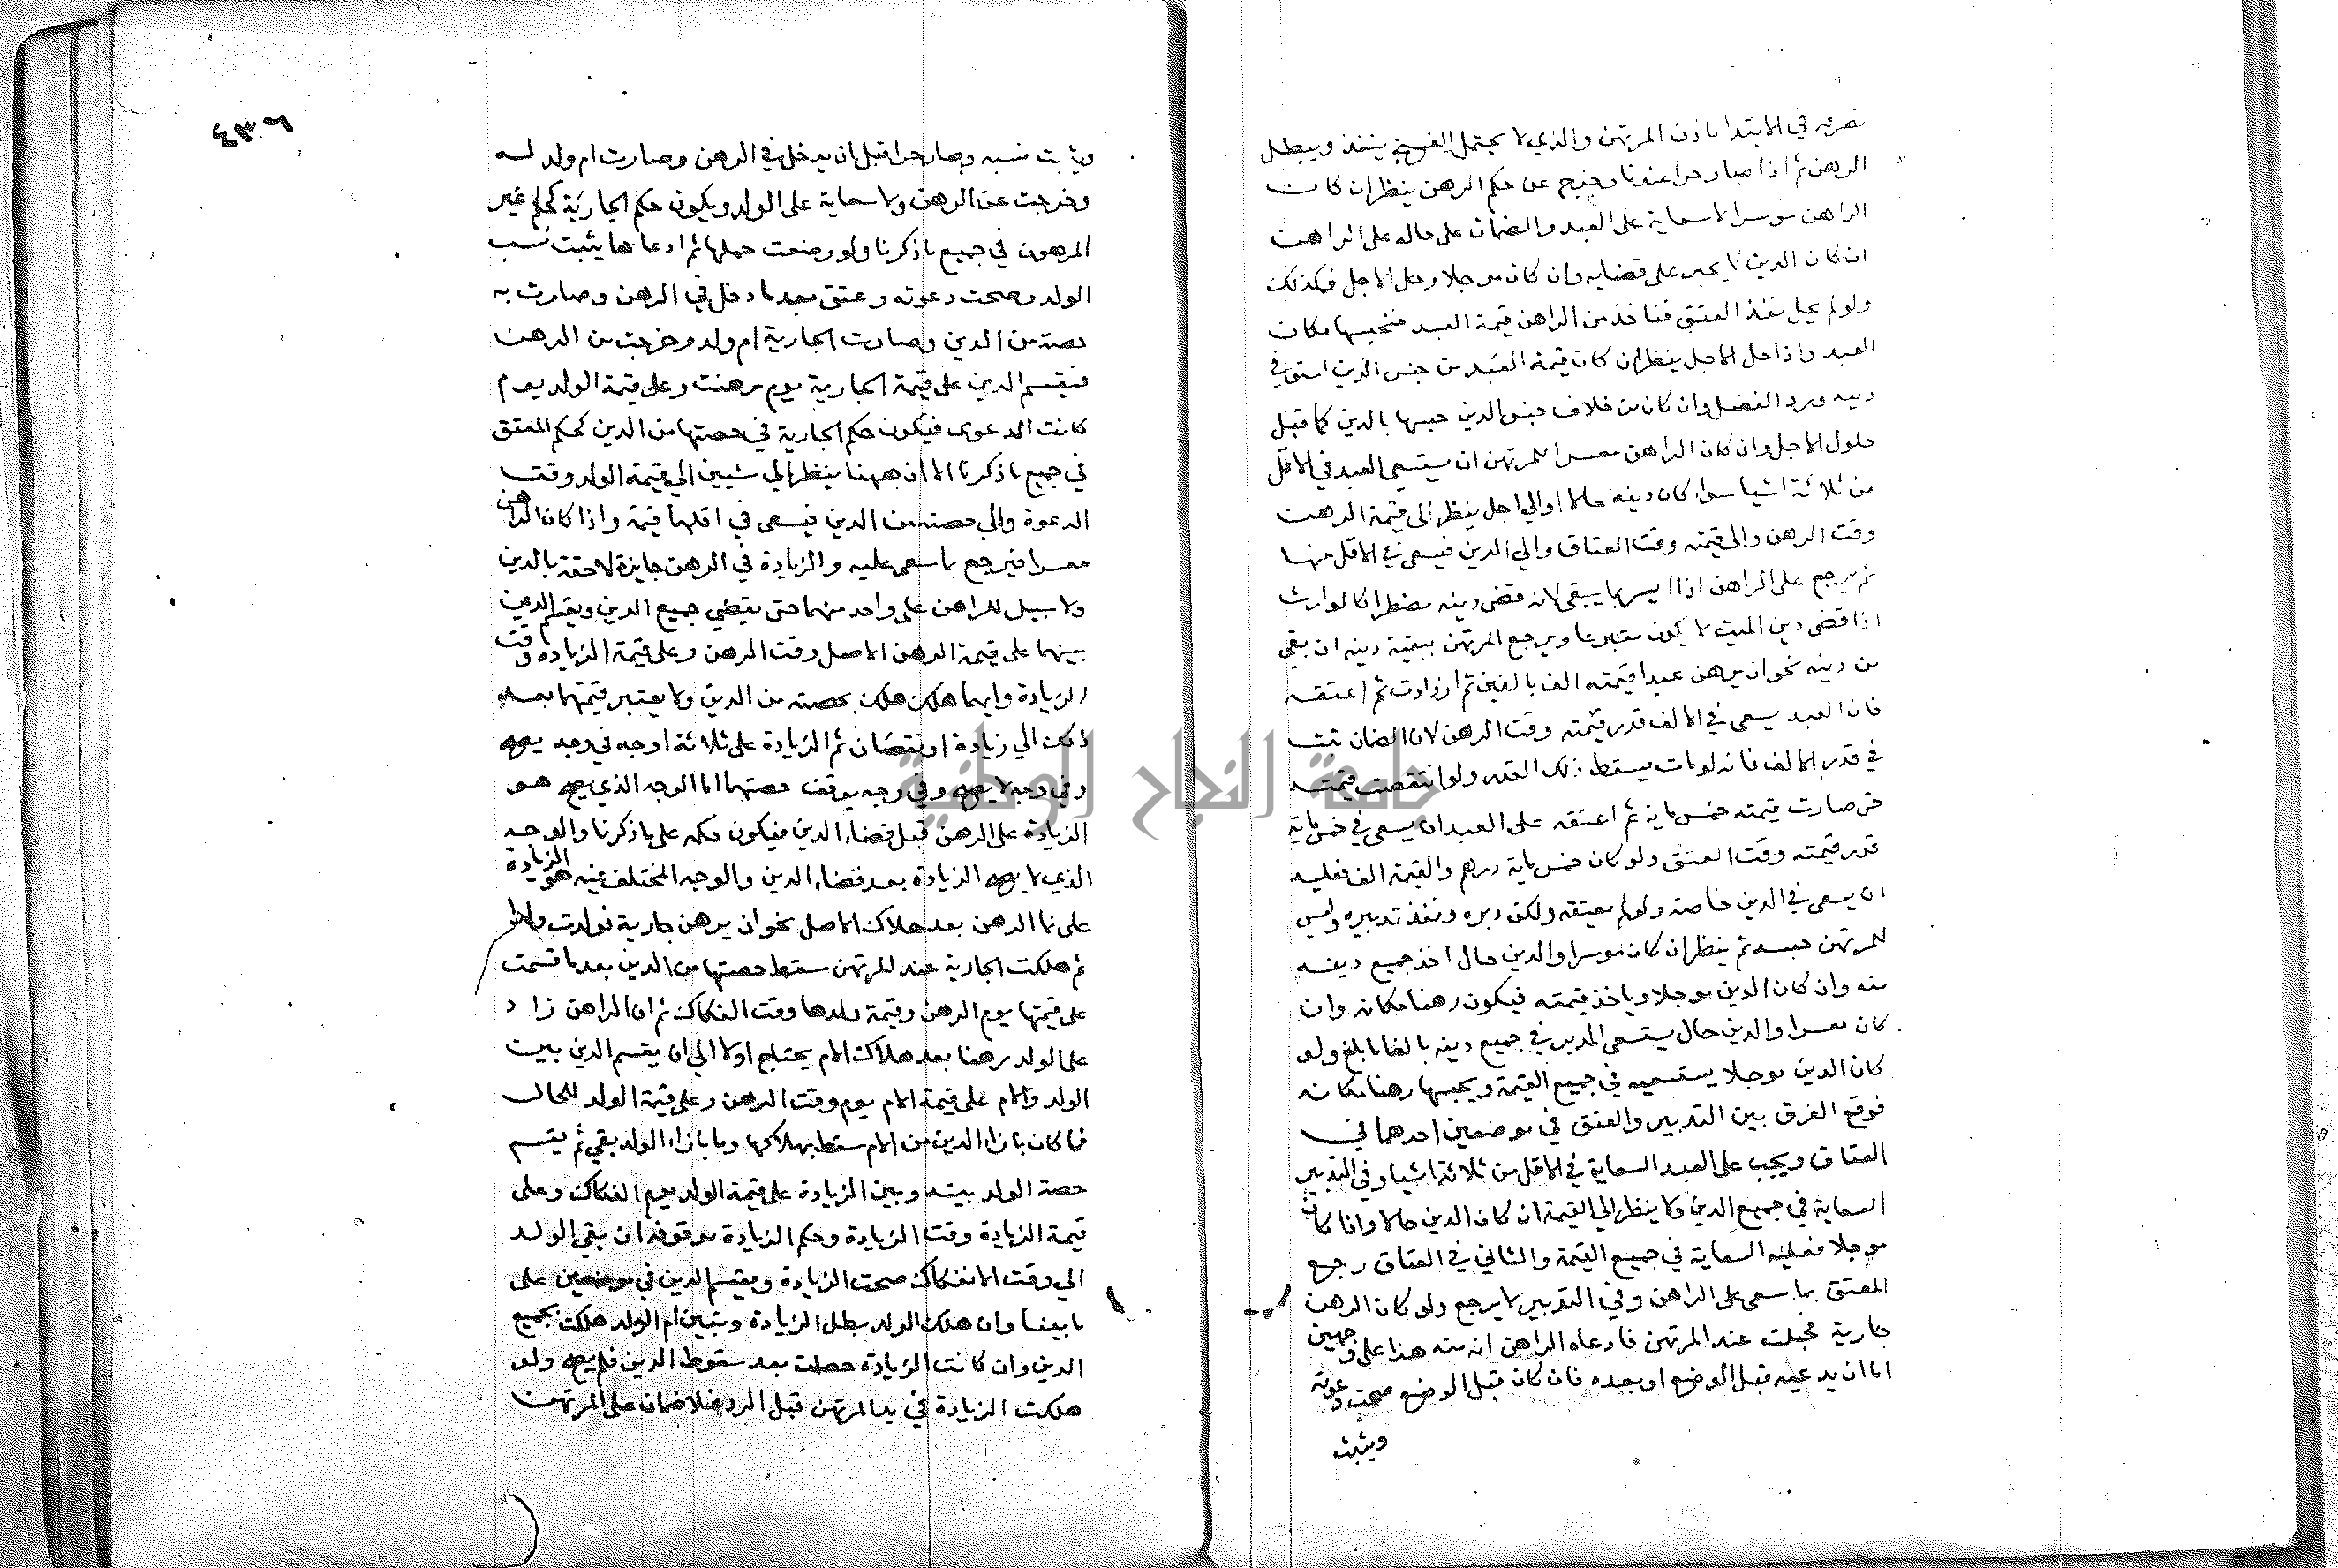 تصرفه في الابتدا باذن المرتهن والذي لا يحتمل الفسخ ينفذ ويبطل
الرهن ثم اذا صار حرا عندنا وخرج عن حكم الرهن ينظر ان كان
الراهن موسرا لا سعاية على العبد والضمان على حاله على الراهن
ان كان الدين يجبر على قضايه وان كان موجلا وحل الاجل فكذلك
ولو لم يحل نفذ العتق فتاخذ من الراهن قيمة العبد فتحبسها مكان
العبد واذا حل الاجل ينظر ان كان قيمة العبد من جنس الدين استوفي
دينه ورد الفضل وان كان من خلاف جنس الدين حبسها بالدين كما قبل
حلول الاجل وان كان الراهن معسرا للمرتهن ان يستسعي العبد في الاقل
من ثلاثة اشيا سوا كان دينه حالا او الي اجل ينظر الى قيمة الرهن
وقت الرهن والى قيمته وقت العتاق والي الدين فيسعى في الاقل منها
ثم يرجع على الراهن اذا ايسر بما لانه قضى دينه مضطرا كالوارث
اذا قضى دين الميت لا يكون متبرعا ويرجع المرتهن ببقية دينه ان بقي
من دينه نحو ان يرهن عبدا قيمته الف بالفين ثم ازدادت ثم اعتقه
فان العبد يسعى في الالف قدر قيمته وقت الرهن لان الضمان
في قدر الالف فانه لو مات يسقط ذلك القدر ولو انتقصت قيمته
حتى صارت قيمته خمس ماية ثم اعتقه على العبد ان يسعى في خمس ماية
قدر قيمته وقت العتق ولو كان خمس ماية درهم والقيمة الف فعليه
ان يسعى في الدين خاصة ولو لم يعتقه ولكن دبره ونفذ تدبيره وليس
للمرتهن حبسه ثم ينظر ان كان موسرا والدين حال اخذ جميع دينه
منه وان كان الدين موجلا وياخذ قيمته فيكون رهنا مكانه وان
كان معسرا والدين حال يستسعي المدبر في جميع دينه بالغا ما بلغ ولو
كان الدين موجلا يستسعيه في جميع القيمة ويحبسها رهنا مكانه
فوقع الفرق بين التدبير والعتق في موضعين احدهما في
العتاق ويجب على العبد السعاية في الاقل من ثلاثة اشيا وفي التدبير
السعاية في جميع الدين ولا ينظر الي القيمة ان كان الدين حالا وان كان
موجلا فعليه السعاية في جميع القيمة والثاني في العتاق رجع
المعتق بما سعى على الراهن وفي التدبير لا يرجع ولو كان الرهن
جارية فحبلت عند المرتهن فادعاه الراهن انه منه هذا على وجهين
اما ان يدعيه قبل الوضع او بعده فان كان قبل الوضع صحت دعوته
ويثبت
٤٣٦
ويثبت نسبه وصار حرا قبل ان يدخل في الرهن وصارت ام ولد له
وخرجت عن الرهن ولا سعاية على الولد ويكون حكم الجارية كحكم غير
المرهون في جميع ما ذكرنا ولو وضعت حملها ثم ادعاها يثبت نسب
الولد وصحت دعوته وعتق بعد ما دخل في الرهن وصارت به
حصة من الدين وصارت الجارية ام ولد وخرجت من الرهن
فيقسم الدين على قيمة الجارية يوم رهنت وعلى قيمة الولد يوم
كانت الدعوى فيكون حكم الجارية في حصتها من الدين كحكم المعتق
في جميع ما ذكرنا الا ان ههنا ينظر الي شيين الي قيمة الولد وقت
الدعوة والي حصته من الدين فيسعى في اقلهما قيمة واذا كان الراهن
معسرا فيرجع بما سعى عليه والزيادة في الرهن جايزة لاحقة بالدين
ولا سبيل للراهن على واحد منهما حتى يقضي جميع الدين ويقسم الدين
بينهما على قيمة الرهن الاصل وقت الرهن وعلى قيمة الزيادة وقت
الزيادة وايهما هلك هلك بحصته من الدين ولا يعتبر قيمتهما بعد
ذلك الي زيادة او نقصان ثم الزيادة على ثلاثة اوجه في وجه يصح
وفي وجه لا يصح وفي وجه يوقف حصتهما اما الوجه الذي يصح هو
الزيادة على الرهن قبل قضاء الدين فيكون حكمه على ما ذكرنا والوجه
الذي لا يصح الزيادة بعد قضاء الدين والوجه المختلف فيه هو الزيادة
على نما الرهن بعد هلاك الاصل نحو ان يرهن جارية فولدت ولدا
ثم هلكت الجارية عند المرتهن سقط حصتها من الدين بعد ما قسمت
على قيمتها يوم الرهن وقيمة ولدها وقت الفكاك ثم ان الراهن زاد
على الولد رهنا بعد هلاك الام يحتاج اولا الي ان يقسم الدين بين
الولد والام على قيمة الام يوم وقت الرهن وعلى قيمة الولد للحال
فما كان بازاء الدين من الام سقط بهلاكها وما بازاء الولد بقي ثم يقسم
حصة الولد بينه وبين الزيادة على قيمة الولد يوم الفكاك وعلى
قيمة الزيادة وقت الزيادة وحكم الزيادة موقوفه ان بقي الولد
الي وقت الانفكاك صحت الزيادة ويقسم الدين في موضعين على
ما بينا وان هلك الولد بطل الزيادة وتبين ام الولد هلكت بجميع
الدين وان كانت الزيادة حصلت بعد سقوط الدين فلم يصح ولو
هلكت الزيادة في يد المرتهن قبل الرد فلا ضمان على المرتهن
جامعة النجاح الوطنية